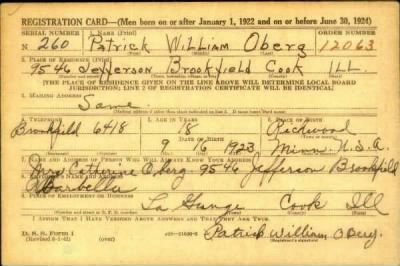 REGISTRATION CARD—(Men born on or after January 1, 1922 and on or before June 30, 1924)
SERIAL NUMBER 1. NAME (Print) ORDER NUMBER
N 260 Patrick William Oberg 12063
2. PLACE OF RESIDENCE (Print)
9546 Jefferson Brookfield Cook ILL.
[THE PLACE OF RESIDENCE GIVEN ON THE LINE ABOVE WILL DETERMINE LOCAL BOARD
JURISDICTION; LINE 2 OF REGISTRATION CERTIFICATE WILL BE IDENTICAL]
3. MAILING ADDRESS
Same
4. TELEPHONE 5. AGE IN YEARS 6. PLACE OF BIRTH
Brookfild 6418 18
DATE OF BIRTH
9 16 1923 Minn. U.S.A.
7. NAME AND ADDRESS OF PERSON WHO WILL ALWAYS KNOW YOUR ADDRESS
Mrs. Catherine Oberg 9546 Jefferson Brookfild
PLACE OF EMPLOYMENT OR BUSINESS
La Grange Cook Ill
I AFFIRM THAT I HAVE VERIFIED ABOVE ANSWERS AND THAT THEY ARE TRUE.
D. S. S. Form 1
Patrick William Oberg
(Registrant's signature)